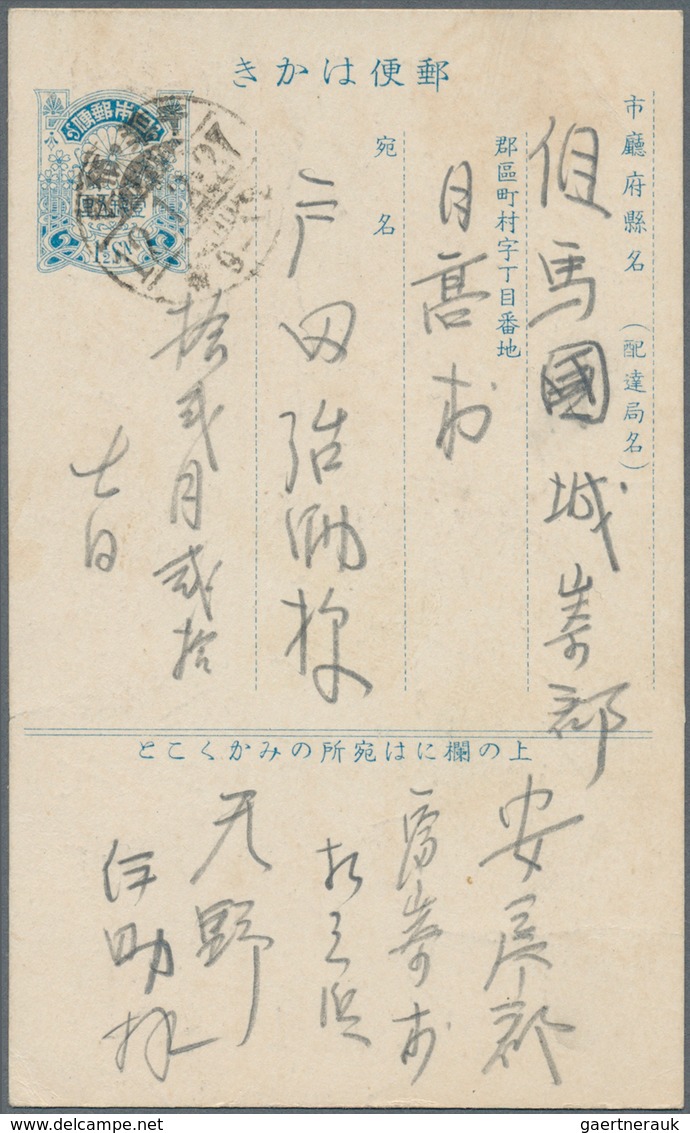 郵便はかき
市廳府縣名 (配達局名)
但馬國城崎郡
郡區町村字丁目番地
日髙村
宛名
戸田治助様
拾弐月弐拾
七日
大日本郵便
壹錢五厘
1½Sɴ
上の欄には宛所のみかくこと
安房郡
富崎村
天野
伊助様
gaertnerauk